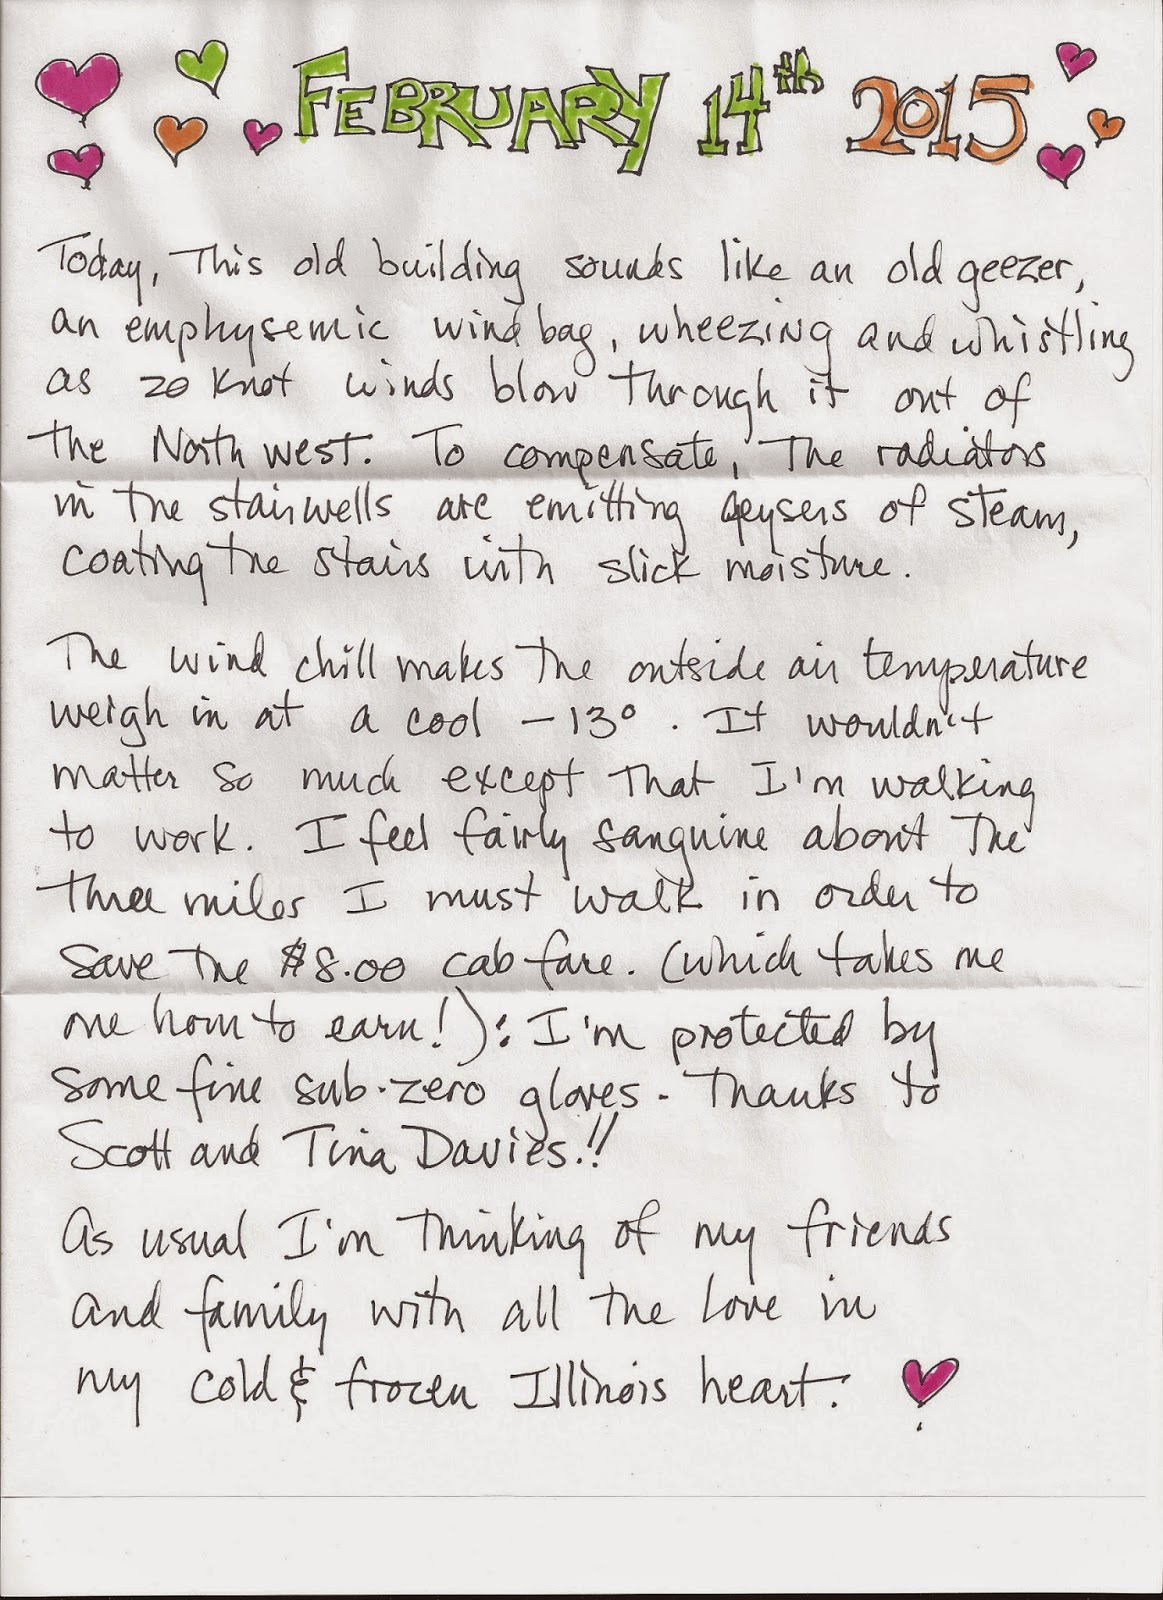 FEBRUARY 14th 2015
Today, This old building sounds like an old geezer,
an emphysemic windbag, wheezing and whistling
as 20 knot winds blow through it out of
the Northwest. To compensate, the radiators
in the stairwells are emitting geysers of steam,
coating the stairs with slick moisture.
The wind chill makes the outside air temperature
weigh in at a cool -13°. It wouldn't
matter so much except that I'm walking
to work. I feel fairly sanguine about the
three miles I must walk in order to
save the $8.00 cab fare. (which takes me
one hour to earn!): I'm protected by
some fine sub-zero gloves. Thanks to
Scott and Tina Davies!!
As usual I'm thinking of my friends
and family with all the love in
my cold & frozen Illinois heart.